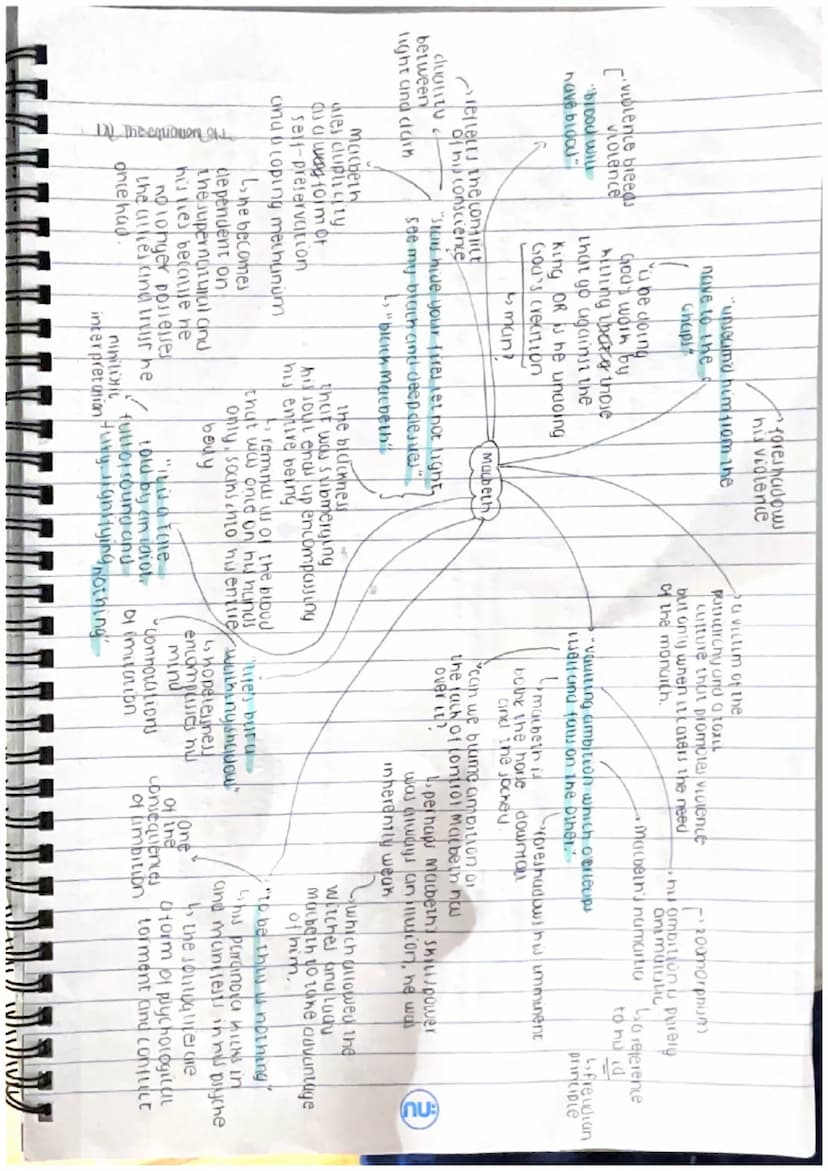 Macbeth
["violence breeds
violence
"blood will
have blood"
"unseam'd him from the
nave to the
chaps"
foreshadows
his violence
"is he doing
God's work by
killing those
that go against the
king OR is he undoing
God's creation
↳ man?
→ reflects the conflict
of his conscience
duality
between
light and dark
"stars hide your fires let not light
see my black and deep desires"
↳ "black Macbeth"
Macbeth
uses duplicity
as a form of
self-preservation
and a coping mechanism
↳ he becomes
dependent on
the supernatural and
his lies because he
no longer possesses
the allies and trust he
once had.
the blackness
that was submerging
his soul ends up encompassing
his entire being
↳ reminds us of the blood
that was once on his hands
only, soaks into his entire
body
"it is a tale
told by an idiot,
full of sound and
fury signifying nothing"
nihilistic
interpretation
"life's but a
walking shadow"
↳ hopelessness
encompasses his
mind
connotations
of imitation
→ a victim of the
patriarchy and a toxic
culture that promotes violence
but only when it caters the need
of the monarch.
"vaulting ambition which o'erleaps
itself and falls on the other"
↳ Macbeth is
both the horse
and the jockey.
↳ foreshadows his imminent
downfall
→ Macbeth's hamartia
→ his ambition is purely
animalistic
[zoomorphism]
↳ a reference
to his id
↳ freudian
principle
"can we blame ambition or
the lack of control Macbeth has
over it?
↳ perhaps Macbeth's skill/power
was always an illusion, he was
inherently weak
↳ which allowed the
witches and lady
Macbeth to take advantage
of him.
"to be thus is nothing"
↳ his paranoia kicks in
and manifests in his psyche
↳ the soliloquies are
a form of psychological
torment and conflict
one
of the
consequences
of ambition
ü